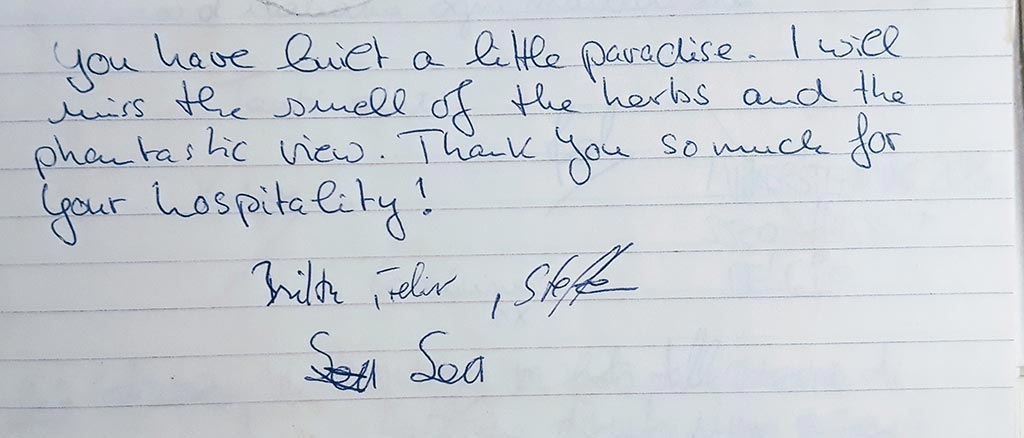 You have built a little paradise. I will
miss the smell of the herbs and the
phantastic view. Thank you so much for
your hospitality!
, Felix, Steffen
Sea